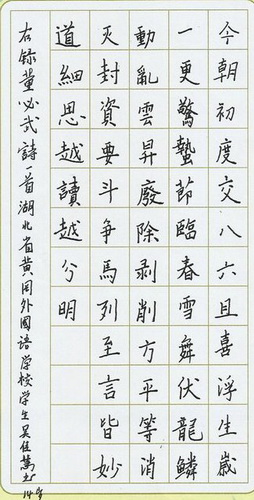 今朝初度交八六且喜浮生歲
一更驚蟄節臨春雪舞伏龍鱗
動亂雲昇廢除剥削方平等消
灭封資要斗争馬列至言皆妙
道細思越讀越分明
右錄董必武詩一首湖北省黄冈外國語學校學生吴任书14岁